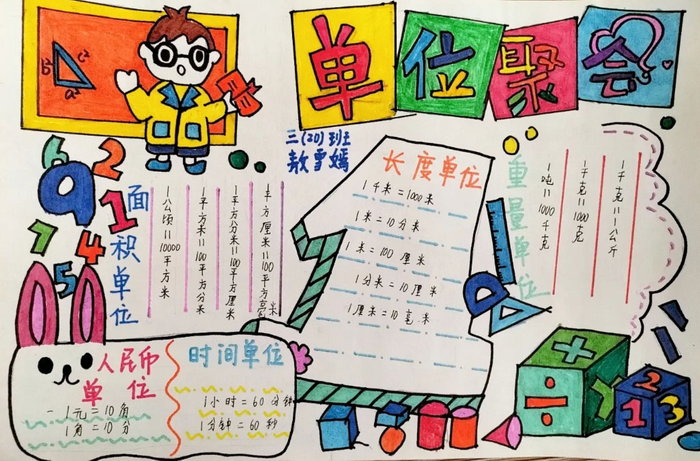 单位聚会
三(20)班
敖雪嫣
b
c
a
6 2
9 1
7 4
5
面积单位
1公顷=10000平方米
1平方米=100平方分米
1平方分米=100平方厘米
1平方厘米=100平方毫米
长度单位
1千米=1000米
1米=10分米
1米=100厘米
1分米=10厘米
1厘米=10毫米
重量单位
1吨=1000千克
1千克=1000克
1千克=1公斤
人民币
单位
1元=10角
1角=10分
时间单位
1小时=60分钟
1分钟=60秒
+
÷ ×
2
1 3